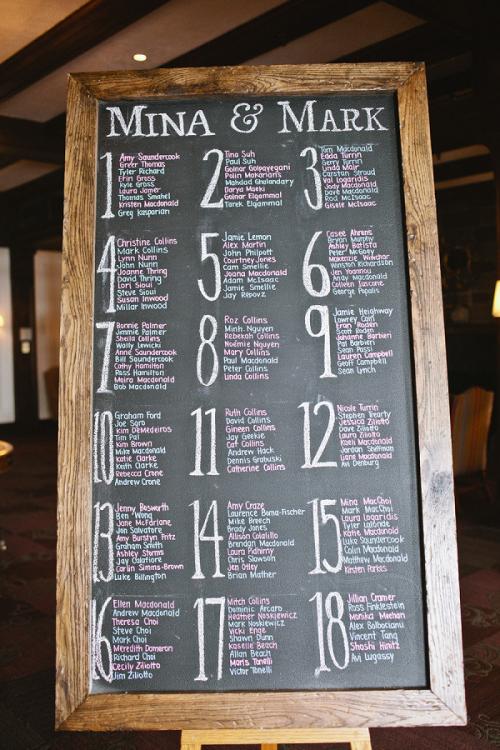 MINA & MARK
1
Amy Saundercook
Greer Thomas
Tyler Richard
Erin Gross
Kyle Gross
Laura Comer
Thomas Smahel
Kristen Macdonald
Greg Kasparian
2
Tina Suh
Paul Suh
Golnar Golpayegani
Pelin Moharians
Mahdad Ghalandary
Darya Maeki
Golnar Elgammal
Tarek Elgammal
3
Tom Macdonald
Edda Turrin
Gerry Turrin
Linda Mair
Carstan Stroud
Val Logaridis
Jody Macdonald
Dave Macdonald
Rod McIsaac
Gisele McIsaac
4
Christine Collins
Mark Collins
Lynn Nunn
John Nunn
Joanne Thring
David Thring
Lori Sioui
Steve Sioui
Susan Inwood
Millar Inwood
5
Jamie Lemon
Alex Martin
John Philpott
Courtney Jones
Cam Smellie
Joana Macdonald
Adam McIsaac
Jamie Smellie
Jay Repovz
6
Casee Ahrens
Bryan Murphy
Ashley Batista
Peter McGoey
Mackenzie Wilchar
Winston Richardson
Jen Yoannou
Andy Macdonald
Colleen Toscane
George Papalis
7
Bonnie Palmer
Jimmie Palmer
Sheila Collins
Wally Lewicki
Anne Saundercook
Bill Saundercook
Cathy Hamilton
Ross Hamilton
Moira Macdonald
Bob Macdonald
8
Roz Collins
Minh Nguyen
Rebekah Collins
Noémie Nguyen
Mary Collins
Paul Macdonald
Peter Collins
Linda Collins
9
Jaime Heighway
Lowrey Cain
Eran Roden
Scott Roden
Johanne Barbieri
Pal Barbieri
Sean Passi
Lauren Campbell
Geoff Campbell
Sean Lynch
10
Graham Ford
Joe Soro
Kim DeMedeiros
Tim Pal
Kim Brown
Mike Macdonald
Katie Clarke
Keith Clarke
Rebecca Crone
Andrew Crone
11
Ruth Collins
David Collins
Gineen Collins
Jay Geekie
Cat Collins
Andrew Hack
Dennis Grabuski
Catherine Collins
12
Nicole Turrin
Stephen Tracty
Jessica Ziliotto
Dave Ziliotto
Laura Ziliotto
Koeli Macdonald
Jordan Sheffman
Liane Macdonald
Avi Denburg
13
Jenny Bosworth
Ben Wong
Jane McFarlane
Jon Salvatore
Amy Burstyn Fritz
Graham Smith
Ashley Storms
Jay Calatiore
Carlin Simms-Brown
Luke Billington
14
Amy Craze
Laurence Boma-Fischer
Mike Breech
Brody Jones
Allison Colalillo
Brendan Macdonald
Laura Pidhirny
Chris Slawson
Jen Otley
Brian Mather
15
Mina MacChoi
Mark MacChoi
Laura Logaridis
Tyler LaBonde
Katie Macdonald
Luke Saundercook
Colin Macdonald
Matthew Macdonald
Kirsten Parkes
16
Ellen Macdonald
Andrew Macdonald
Theresa Choi
Steve Choi
Mark Choi
Meredith Dameron
Richard Choi
Cecily Ziliotto
Jim Ziliotto
17
Mitch Collins
Dominic Arcaro
Heather Noskiewicz
Mark Noskiewicz
Vicki Enge
Shawn Dunn
Kaselle Beach
Allan Beach
Maris Tonelli
Victor Tonelli
18
Jillian Cramer
Ross Finklestein
Monika Meehan
Alex Balbocianu
Vincent Tang
Shoshi Hinitz
Avi Lugassy